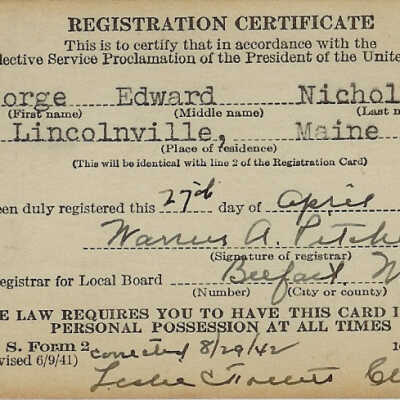 REGISTRATION CERTIFICATE
This is to certify that in accordance with the
lective Service Proclamation of the President of the Unite
orge Edward Nichol
(First name) (Middle name) (Last n
Lincolnville, Maine
(Place of residence)
(This will be identical with line 2 of the Registration Card)
een duly registered this 27th day of April
Warren A. Pitche
(Signature of registrar)
egistrar for Local Board Belfast, M
(Number) (City or county)
E LAW REQUIRES YOU TO HAVE THIS CARD I
PERSONAL POSSESSION AT ALL TIMES
S. Form 2
vised 6/9/41) corrected 8/29/42
Leslie